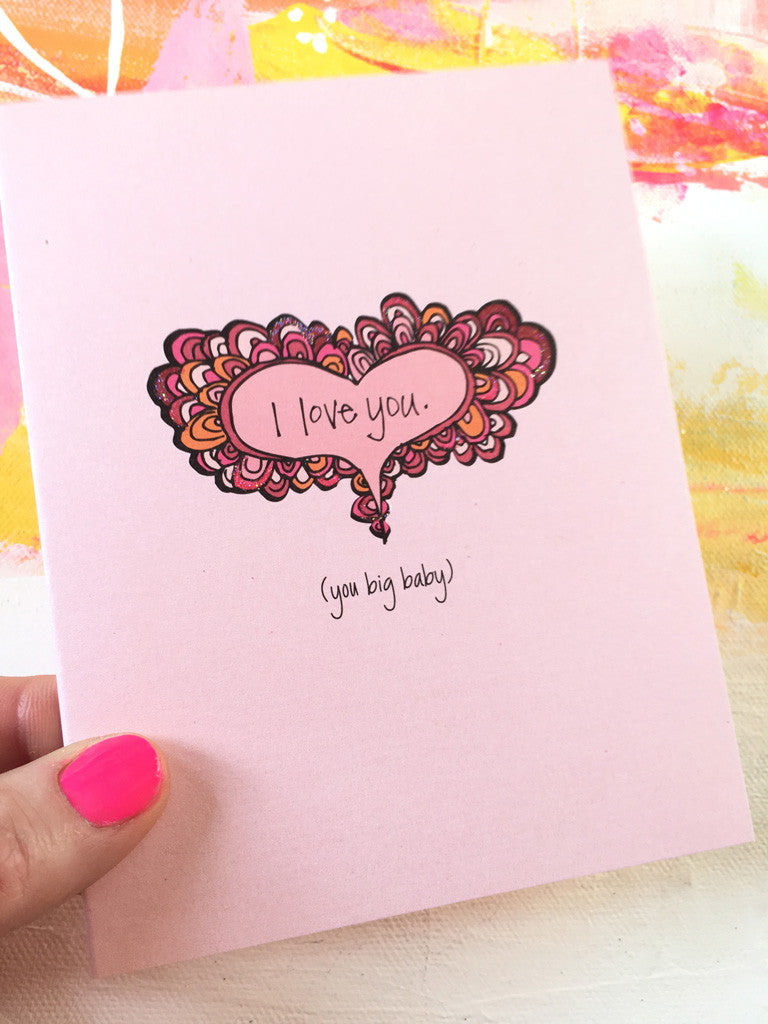 I love you.
(you big baby)